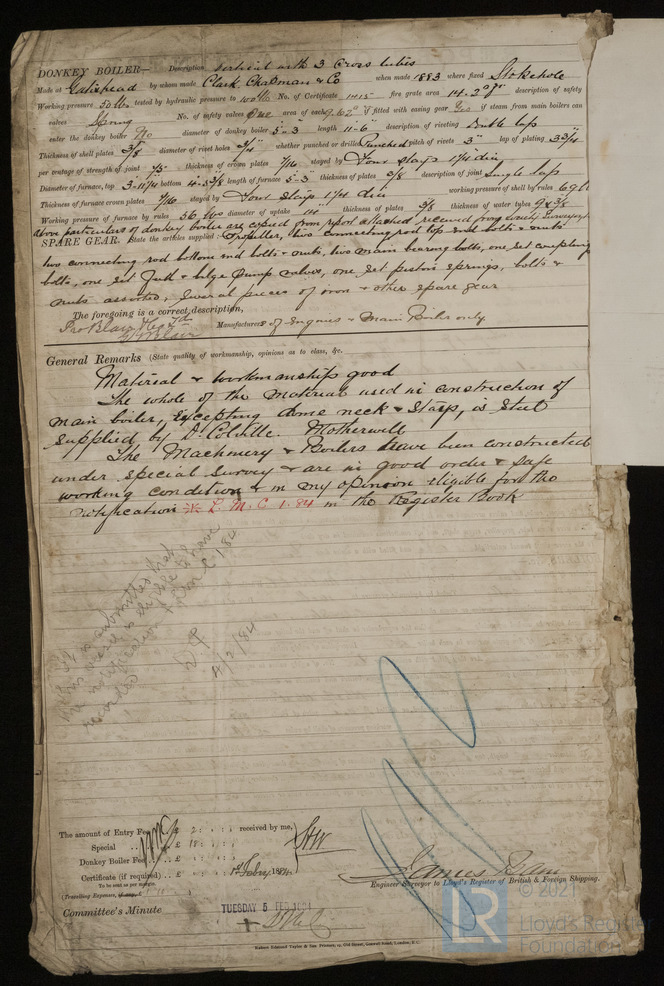 DONKEY BOILER— Description Vertical with 3 Cross tubes
Made at Gateshead by whom made Clark, Chapman & Co when made 1883 where fixed Stokehole
Working pressure 50 lbs tested by hydraulic pressure to 100 lbs No. of Certificate 1415 fire grate area 14.2 description of safety
valves Spring No. of safety valves One area of each 9.62 if fitted with easing gear Yes if steam from main boilers can
enter the donkey boiler No diameter of donkey boiler 5-3 length 11-6 description of riveting Double lap
Thickness of shell plates 3/8 diameter of rivet holes 3/4 whether punched or drilled Punched pitch of rivets 3" lap of plating 3 3/4
per centage of strength of joint 75 thickness of crown plates 7/16 stayed by Four stays 1 1/4 dia
Diameter of furnace, top 3-11 1/4 bottom 4-5 3/8 length of furnace 5-3 thickness of plates 3/8 description of joint Single lap
Thickness of furnace crown plates 7/16 stayed by Four stays 1 1/4 dia working pressure of shell by rules 69 lbs
Working pressure of furnace by rules 56 lbs diameter of uptake 14 thickness of plates 3/8 thickness of water tubes 9 x 3/8
above particulars of donkey boiler are copied from report attached received from Surveyor
SPARE GEAR. State the articles supplied: Propeller, two connecting rod top end bolts & nuts
two connecting rod bottom end bolts & nuts, two main bearing bolts, one set coupling
bolts, one set feed & bilge pump valves, one set piston springs, bolts &
nuts assorted, several pieces of iron & other spare gear
The foregoing is a correct description,
Pro Blair & Co Ld
Blair Manufacturer of Engines & Main Boiler only
General Remarks (State quality of workmanship, opinions as to class, &c.
Material & workmanship good
The whole of the material used in construction of
main boiler, excepting dome neck & stays, is steel
supplied by D. Colville. Motherwell
The Machinery & Boilers have been constructed
under special survey & are in good order & safe
working condition & in my opinion eligible for the
notification ✠ L. M. C 1.84 in the Register Book
It is submitted that
this vessel is eligible to have
the notification ✠ LMC 1.84
recorded
4/2/84
The amount of Entry Fee £ 2 : : received by me,
Special .. £ 18 : :
Donkey Boiler Fee .. £ : :
Certificate (if required) .. £ : : 1st Febry 1884
To be sent as per margin.
(Travelling Expenses,
James
Engineer Surveyor to Lloyd's Register of British & Foreign Shipping.
Committee's Minute TUESDAY 5 FEB 1884
+ LMC
Robert Edmund Taylor & Son, Printers, 19, Old Street, Goswell Road, London, E.C.
LR
© 2021
Lloyd's Register
Foundation